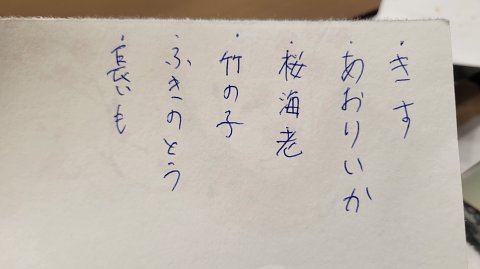 ・きす
・あおりいか
・桜海老
・竹の子
・ふきのとう
・長いも